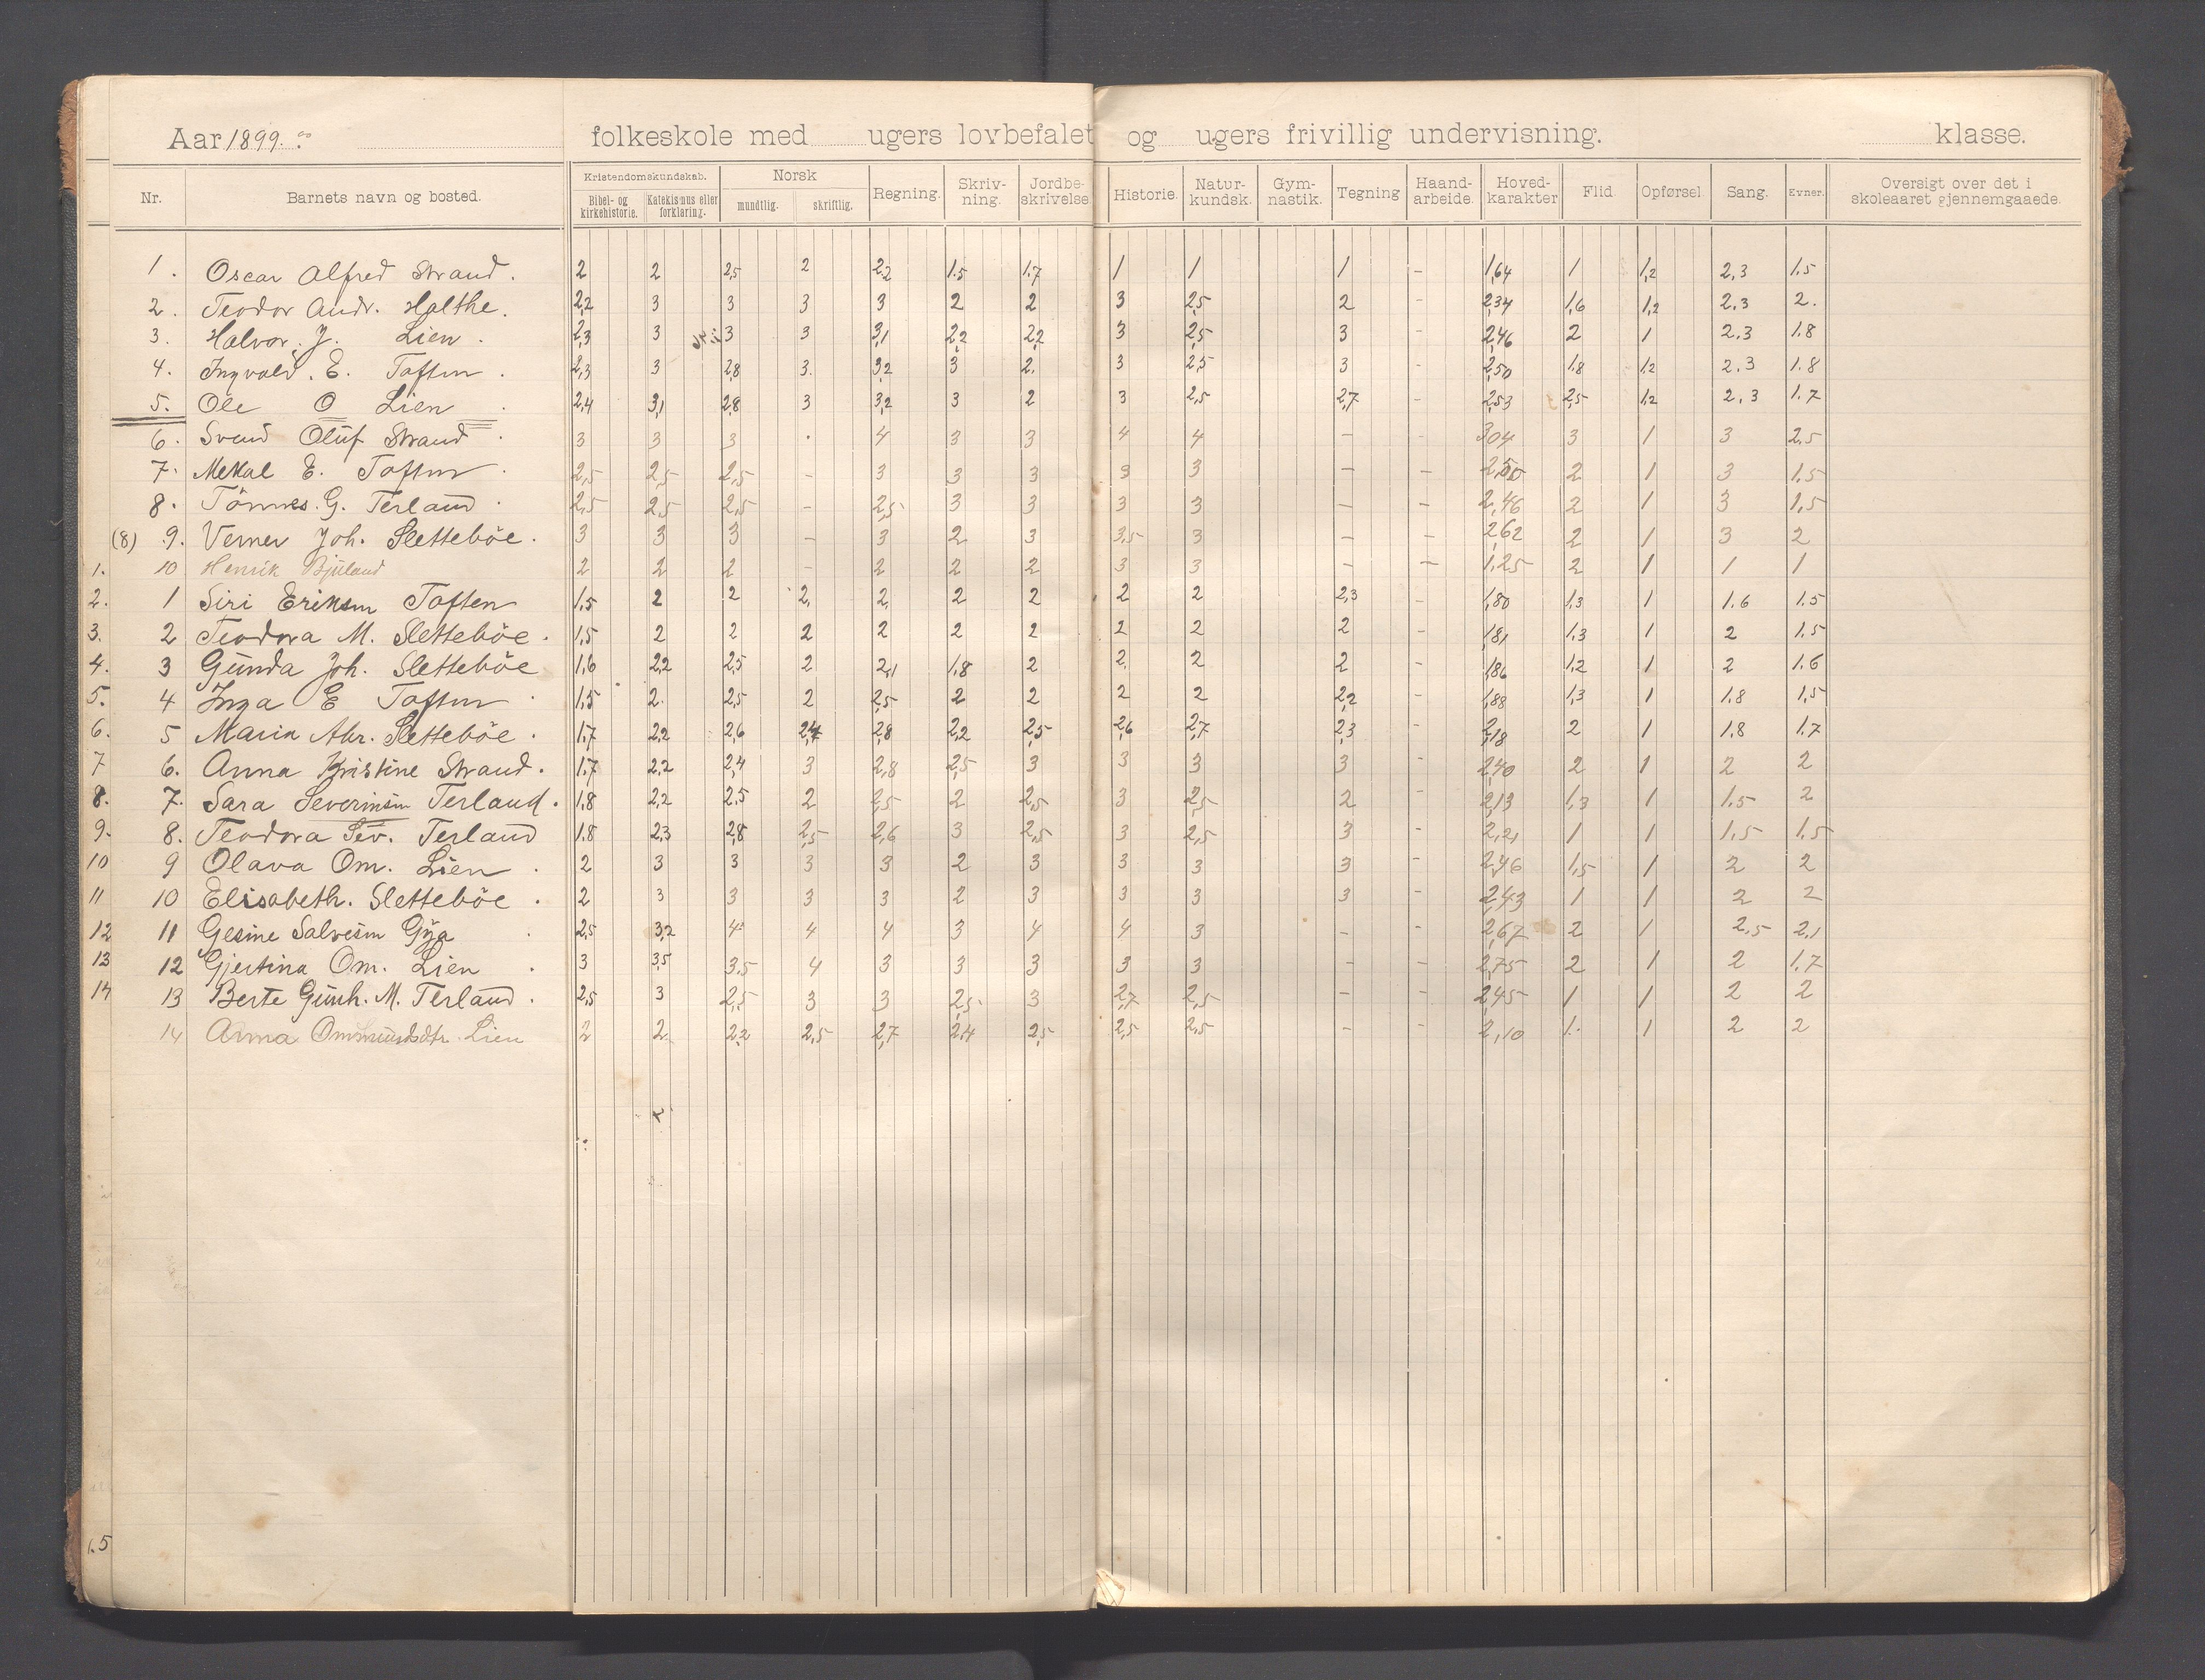 Aar 1899. folkeskole med ugers lovbefalet og ugers frivillig undervisning. klasse.
Nr. Barnets navn og bosted. Kristendomskundskab. Bibel- og kirkehistorie. Katekismus eller forklaring. Norsk mundtlig. skriftlig. Regning. Skriv-ning. Jordbe-skrivelse. Historie. Natur-kundsk. Gym-nastik. Tegning Haand-arbeide. Hoved-karakter Flid. Opførsel. Sang. Evner. Oversigt over det i skoleaaret gjennemgaaede.
1. Oscar Alfred Strand. 2 2 2,5 2 2,2 1.5 1.7 1 1 1 - 1,64 1 1,2 2,3 1.5
2. Teodor Andr. Halthe. 2,2 3 3 3 3 2 2 3 2,5 2 - 2,34 1,6 1,2 2.3 2.
3. Halvor J. Lien. 2,3 3 3 3 3,1 2,2 2,2 3 2,5 3 - 2,46 2 1 2.3 1.8
4. Ingvald. E. Toften. 2,3 3 2,8 3. 3,2 3 2. 3 2,5 3 - 2,50 1,8 1,2 2.3 1.8
5. Ole O Lien 2,4 3,1 2,8 3 3,2 3 2 3 2,5 2,7 - 2,53 2,5 1,2 2,3 1.7
6. Svend Oluf Strand. 3 3 3 . 4 3 3 4 4 - 3,04 3 1 3 2,5
7. Mekal E. Toften. 2,5 2,5 2,5 - 3 3 3 3 3 - - 2 1 3 1.5
8. Tönnes. G. Terland. 2,5 2,5 2,5 - 2,5 3 3 3 3 - - 2,46 2 1 3 1,5
(8) 9. Verner Joh. Sletteböe. 3 3 3 - 3 2 3 3,5 3 - - 2,62 2 1 3 2
1. 10 Henrik Bjuland 2 2 2 - 2 2 2 3 3 - - 1,25 2 1 1 1
2. 1 Siri Eriksen Toften 1,5 2 2 2, 2, 2 2 2 2 2,3 - 1,80 1,3 1 1.6 1.5
3. 2 Teodora M. Slettebøe. 1,5 2 2 2 2 2 2 2 2 2 - 1,81 1,3 1 2 1.5
4. 3 Gunda Joh. Slettebøe 1,6 2,2 2,5 2 2,1 1,8 2 2 2 2 - 1,86 1,2 1 2 1.6
5. 4 Inga E Toften. 1,5 2. 2,5 2 2,5 2 2 2 2 2,2 - 1,88 1,3 1 1.8 1,5
6. 5 Maria Abr. Slettebøe. 1,7 2,2 2,6 2,4 2,8 2,2 2,5 2,6 2,7 2,3 - 2,18 2 1 1.8 1.7
7 6. Anna Kristine Strand. 1,7 2,2 2,4 3 2,8 2,5 3 3 3 3 - 2,40 2 1 2 2
8. 7. Sara Severinsen Terland. 1,8 2,2 2,5 2 2,5 2 2,5 3 2,5 2 - 2,13 1,3 1 1.5 2
9. 8. Teodora Sev. Terland 1.8 2,3 2,8 2,5 2,6 3 2,5 3 2,5 3 - 2,21 1 1 1.5 1.5
10 9 Olava Om. Lien. 2 3 3 3 3 2 3 3 3 3 - 2,46 1,5 1 2 2
11 10 Elisabeth. Slettebøe. 2 3 3 3 3 2 3 3 3 3 - 2,43 1 1 2 2
12 11 Gesine Salvesen Gya. 2,5 3,2 4 4 4 3 4 4 3 - - 2,67 2 1 2,5 2,1
13 12 Gjertina Om. Lien. 3 3,5 3,5 4 3 3 3 3 3 - - 2,75 2 1 2 1.7
14 13 Berte Gunh. M. Terland. 2,5 3 2,5 3 3 2,5 3 2,7 2,5 - - 2,45 1 1 2 2
14 Anna Ommundsdtr. Lien 2 2 2,2 2,5 2,7 2,4 2,5 2,5 2,5 - - 2,10 1. 1 2 2